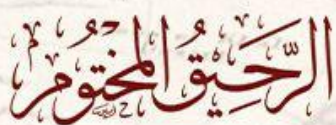 الرَّحِيقُ المَخْتُومُ